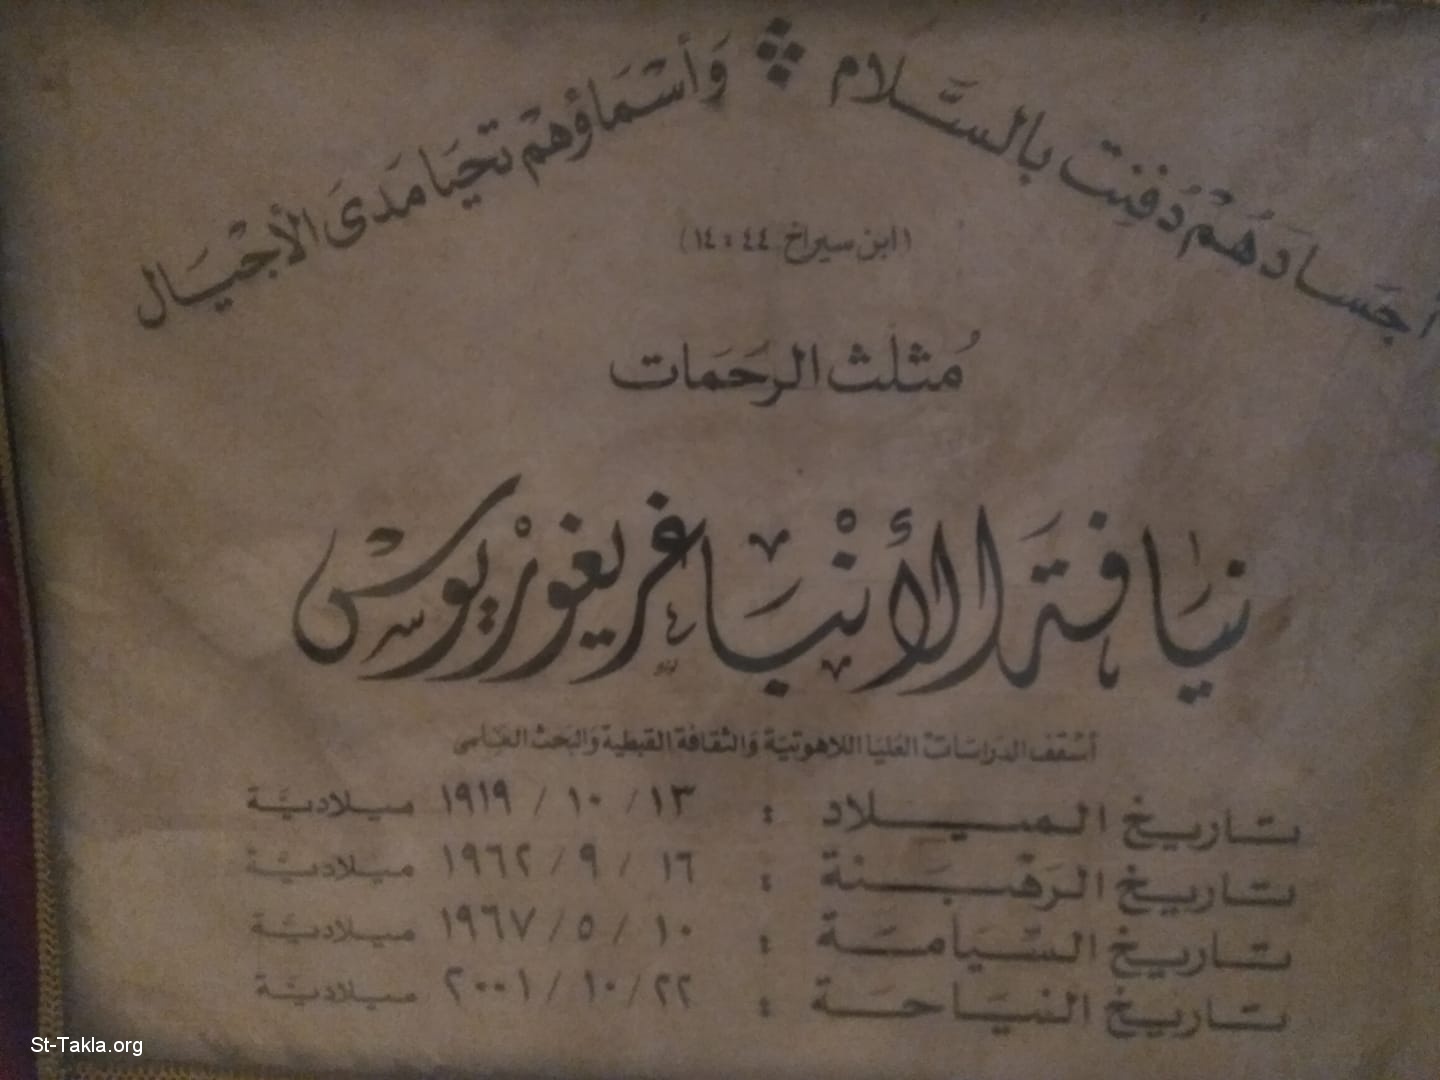 أجسادهم دُفِنت بالسَّلام ❖ وَأسْمَاؤهمْ تحيَا مَدىَ الأجْيَال
(ابن سيراخ ٤٤ : ١٤)
مُثلث الرحَمَات
نيَافة الأنبَا غريغوريوس
أسْقف الدرَاسَات العُليَا اللاهوتيَّة وَالثقافة القبطية وَالبَحث العلمى
تاريخ الميلاد : ١٣ / ١٠ / ١٩١٩ ميلاديَّة
تاريخ الرهْبَنة : ١٦ / ٩ / ١٩٦٢ ميلاديَّة
تاريخ السِّيَامَة : ١٠ / ٥ / ١٩٦٧ ميلاديَّة
تاريخ النيَاحَة : ٢٢ / ١٠ / ٢٠٠١ ميلاديَّة
St-Takla.org